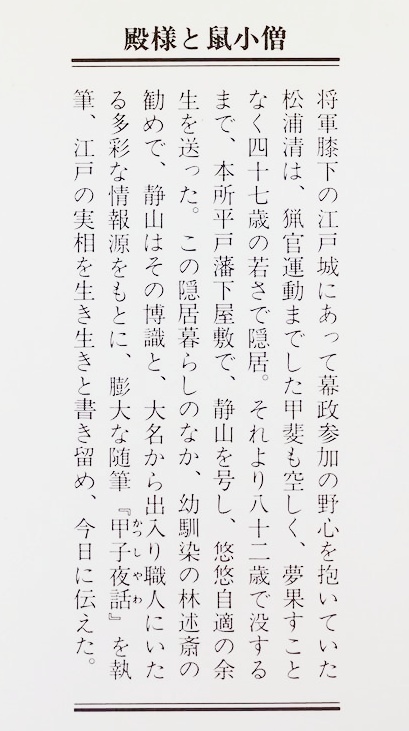 殿様と鼠小僧
将軍膝下の江戸城にあって幕政参加の野心を抱いていた
松浦清は、猟官運動までした甲斐も空しく、夢果すこと
なく四十七歳の若さで隠居。それより八十二歳で没する
まで、本所平戸藩下屋敷で、静山を号し、悠悠自適の余
生を送った。この隠居暮らしのなか、幼馴染の林述斎の
勧めで、静山はその博識と、大名から出入り職人にいた
る多彩な情報源をもとに、膨大な随筆『甲子夜話』を執
かつしやわ
筆、江戸の実相を生き生きと書き留め、今日に伝えた。